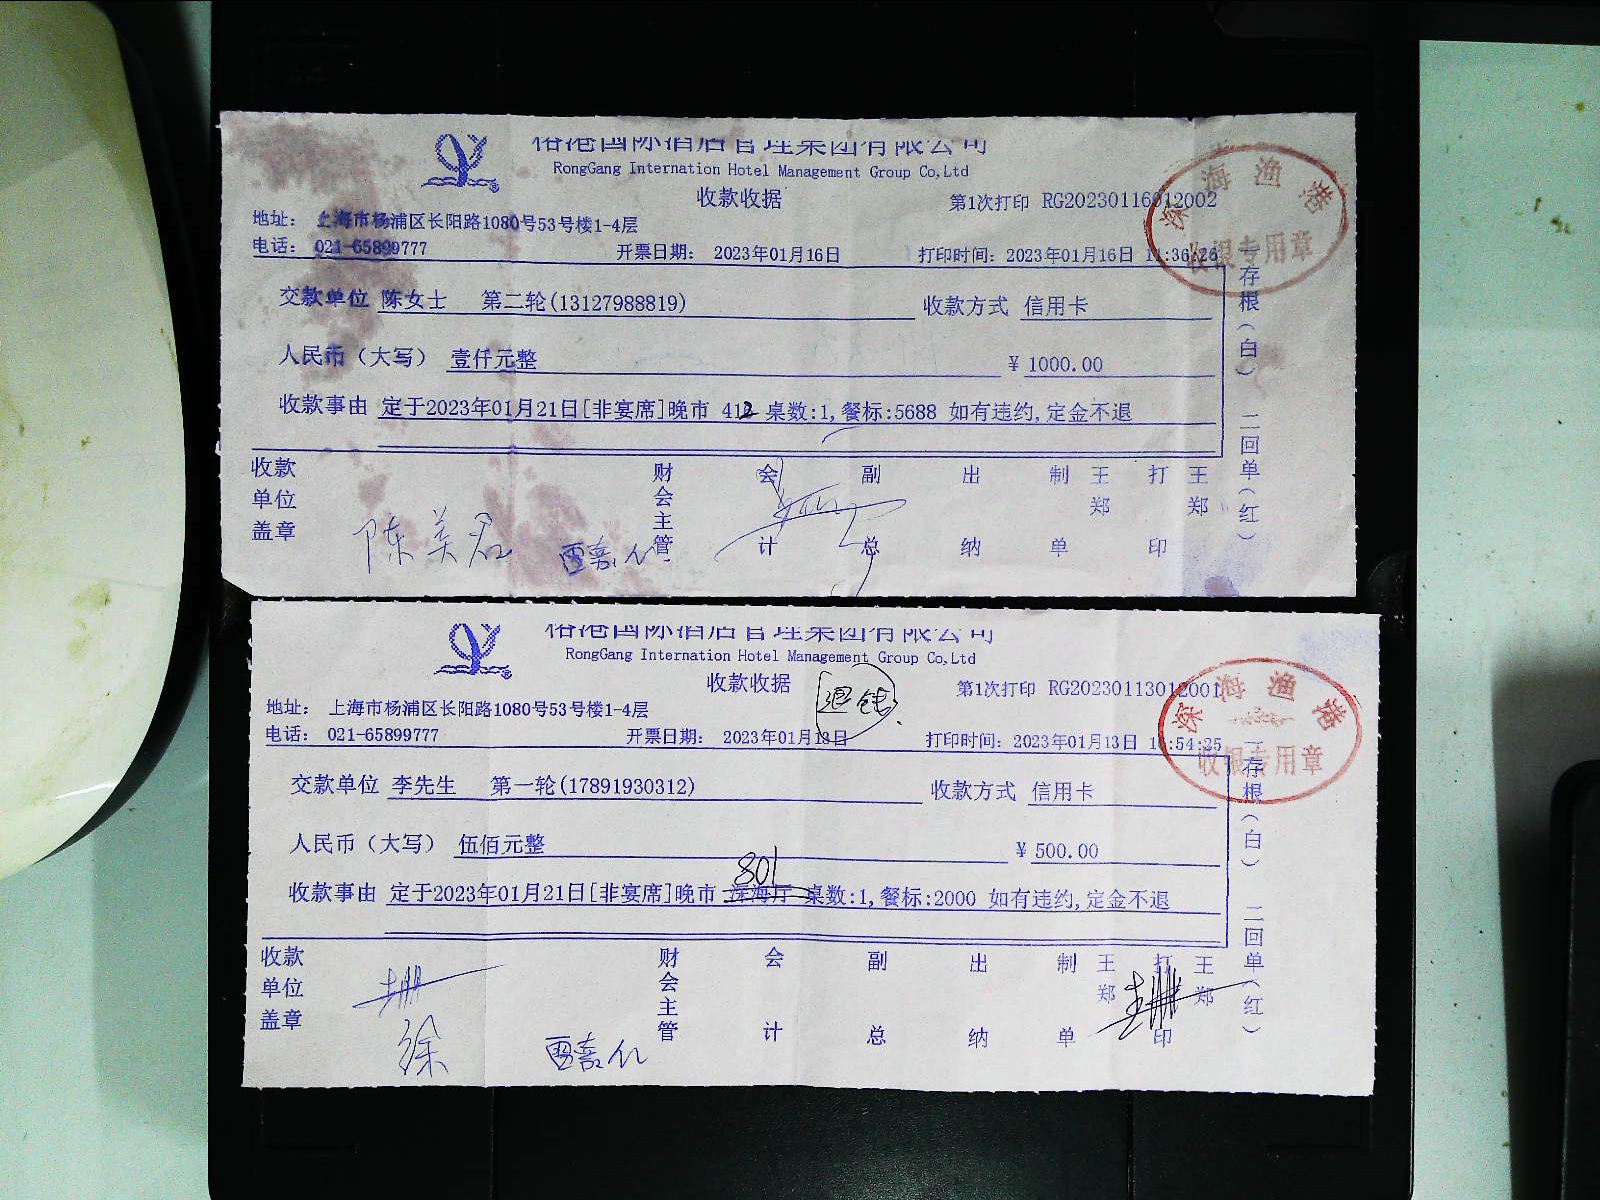 榕港国际酒店管理集团有限公司
RongGang Internation Hotel Management Group Co,Ltd
收款收据
第1次打印 RG20230116012002
地址： 上海市杨浦区长阳路1080号53号楼1-4层
电话： 021-65899777 开票日期： 2023年01月16日 打印时间：2023年01月16日 11:36:26
深海渔港
收银专用章
交款单位 陈女士 第二轮(13127988819) 收款方式 信用卡
人民币（大写） 壹仟元整 ¥ 1000.00
收款事由 定于2023年01月21日[非宴席]晚市 412 桌数:1,餐标:5688 如有违约,定金不退
一存根（白） 二回单（红）
收款单位盖章 财会主管 会计 副总 出纳 制单 王郑 打印 王郑
陈美君
榕港国际酒店管理集团有限公司
RongGang Internation Hotel Management Group Co,Ltd
收款收据
第1次打印 RG20230113012001
地址： 上海市杨浦区长阳路1080号53号楼1-4层
电话： 021-65899777 开票日期： 2023年01月13日 打印时间：2023年01月13日 16:54:25
深海渔港
收银专用章
交款单位 李先生 第一轮(17891930312) 收款方式 信用卡
人民币（大写） 伍佰元整 ¥ 500.00
801
收款事由 定于2023年01月21日[非宴席]晚市 深海厅 桌数:1,餐标:2000 如有违约,定金不退
一存根（白） 二回单（红）
收款单位盖章 财会主管 会计 副总 出纳 制单 王郑 打印 王郑
徐